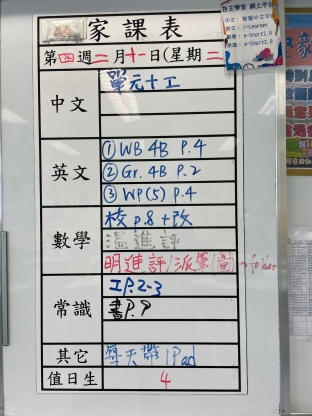 家課表
第四週二月十一日(星期二
中文
單元十工
英文
① WB 4B P.4
② Gr. 4B P.2
③ WP(5) P.4
數學
校 p.8 + 改
溫進評
明進評/派筆(壹)→folder
常識
工P.2-3
書P.9
其它
每天帶 iPad
值日生
4
自主學習 網上平台